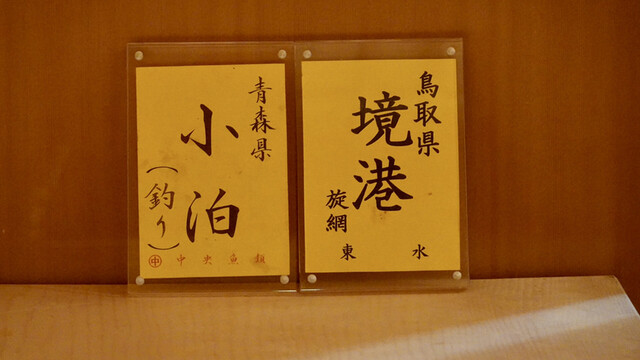 青森県
小泊
(釣り)
㊥中央魚類
鳥取県
境港
旋網
東水